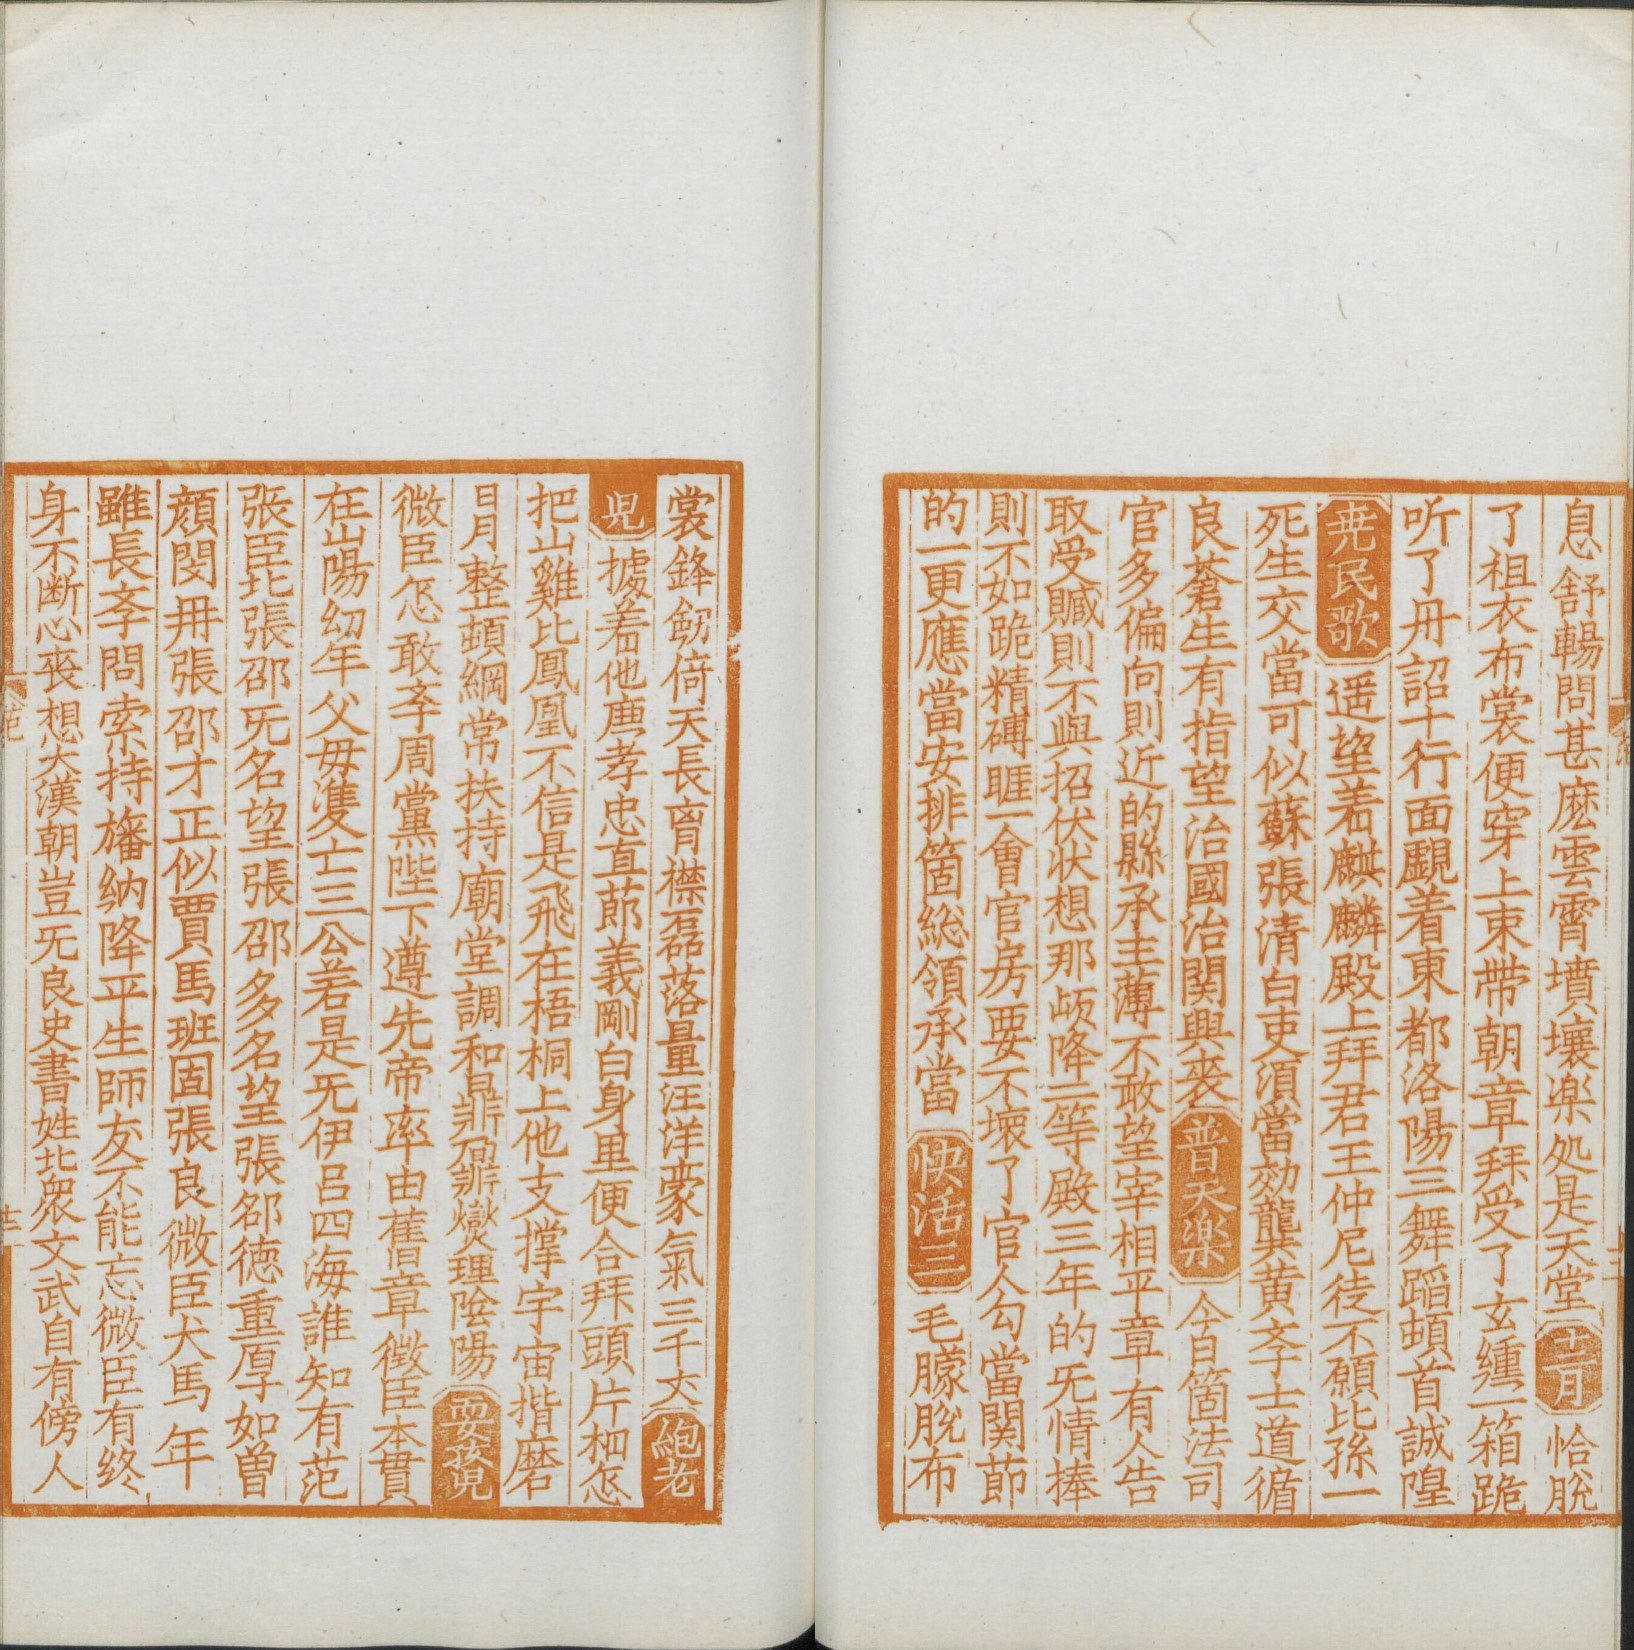 息舒暢問甚麽雲霄墳壤楽処是天堂十二月恰脫
了祖衣布裳便穿上束帶朝章拜受了玄纁一箱跪
听了丹詔十行面覷着東都洛陽三舞蹈頓首誠隍
尭民歌遥望着麒麟殿上拜君王仲尼徒不願比孫一
死生交當可似蘇張清白吏須當効龔黄斈士道循
良蒼生有指望治國治関興衰普天楽今日箇法司
官多偏向則近的縣承主薄不敢望宰相平章有人告
取受贓則不與招伏状想那歧降二等殿三年的旡情捧
則不如跪精磚睚一會官房要不壊了官人勾當関節
的一更應當安排箇総領承當快活三毛朦脫布
裳鋒劔倚天長胷襟磊落量汪洋豪氣三千丈鮑老
児據着他廣孝忠直莭義剛白身里便合拜頭片柤怎
把山雞比鳳凰不信是飛在梧桐上他支撑宇宙揩磨
日月整頓綱常扶持廟堂調和鼎鼐燮理隂陽耍孩兒
微臣怎敢斈周黨陛下遵先帝率由舊章徴臣本貫
在山陽幼年父毋雙亡三公若是旡伊吕四海誰知有范
張臣比張邵旡名望張邵多名望張邵徳重厚如曽
顔閔冄張邵才正似賈馬班固張良微臣犬馬年
雖長斈問索持旛納降平生師友不能忘微臣有终
身不断心丧想大漢朝豈旡良史書姓北衆文武自有傍人